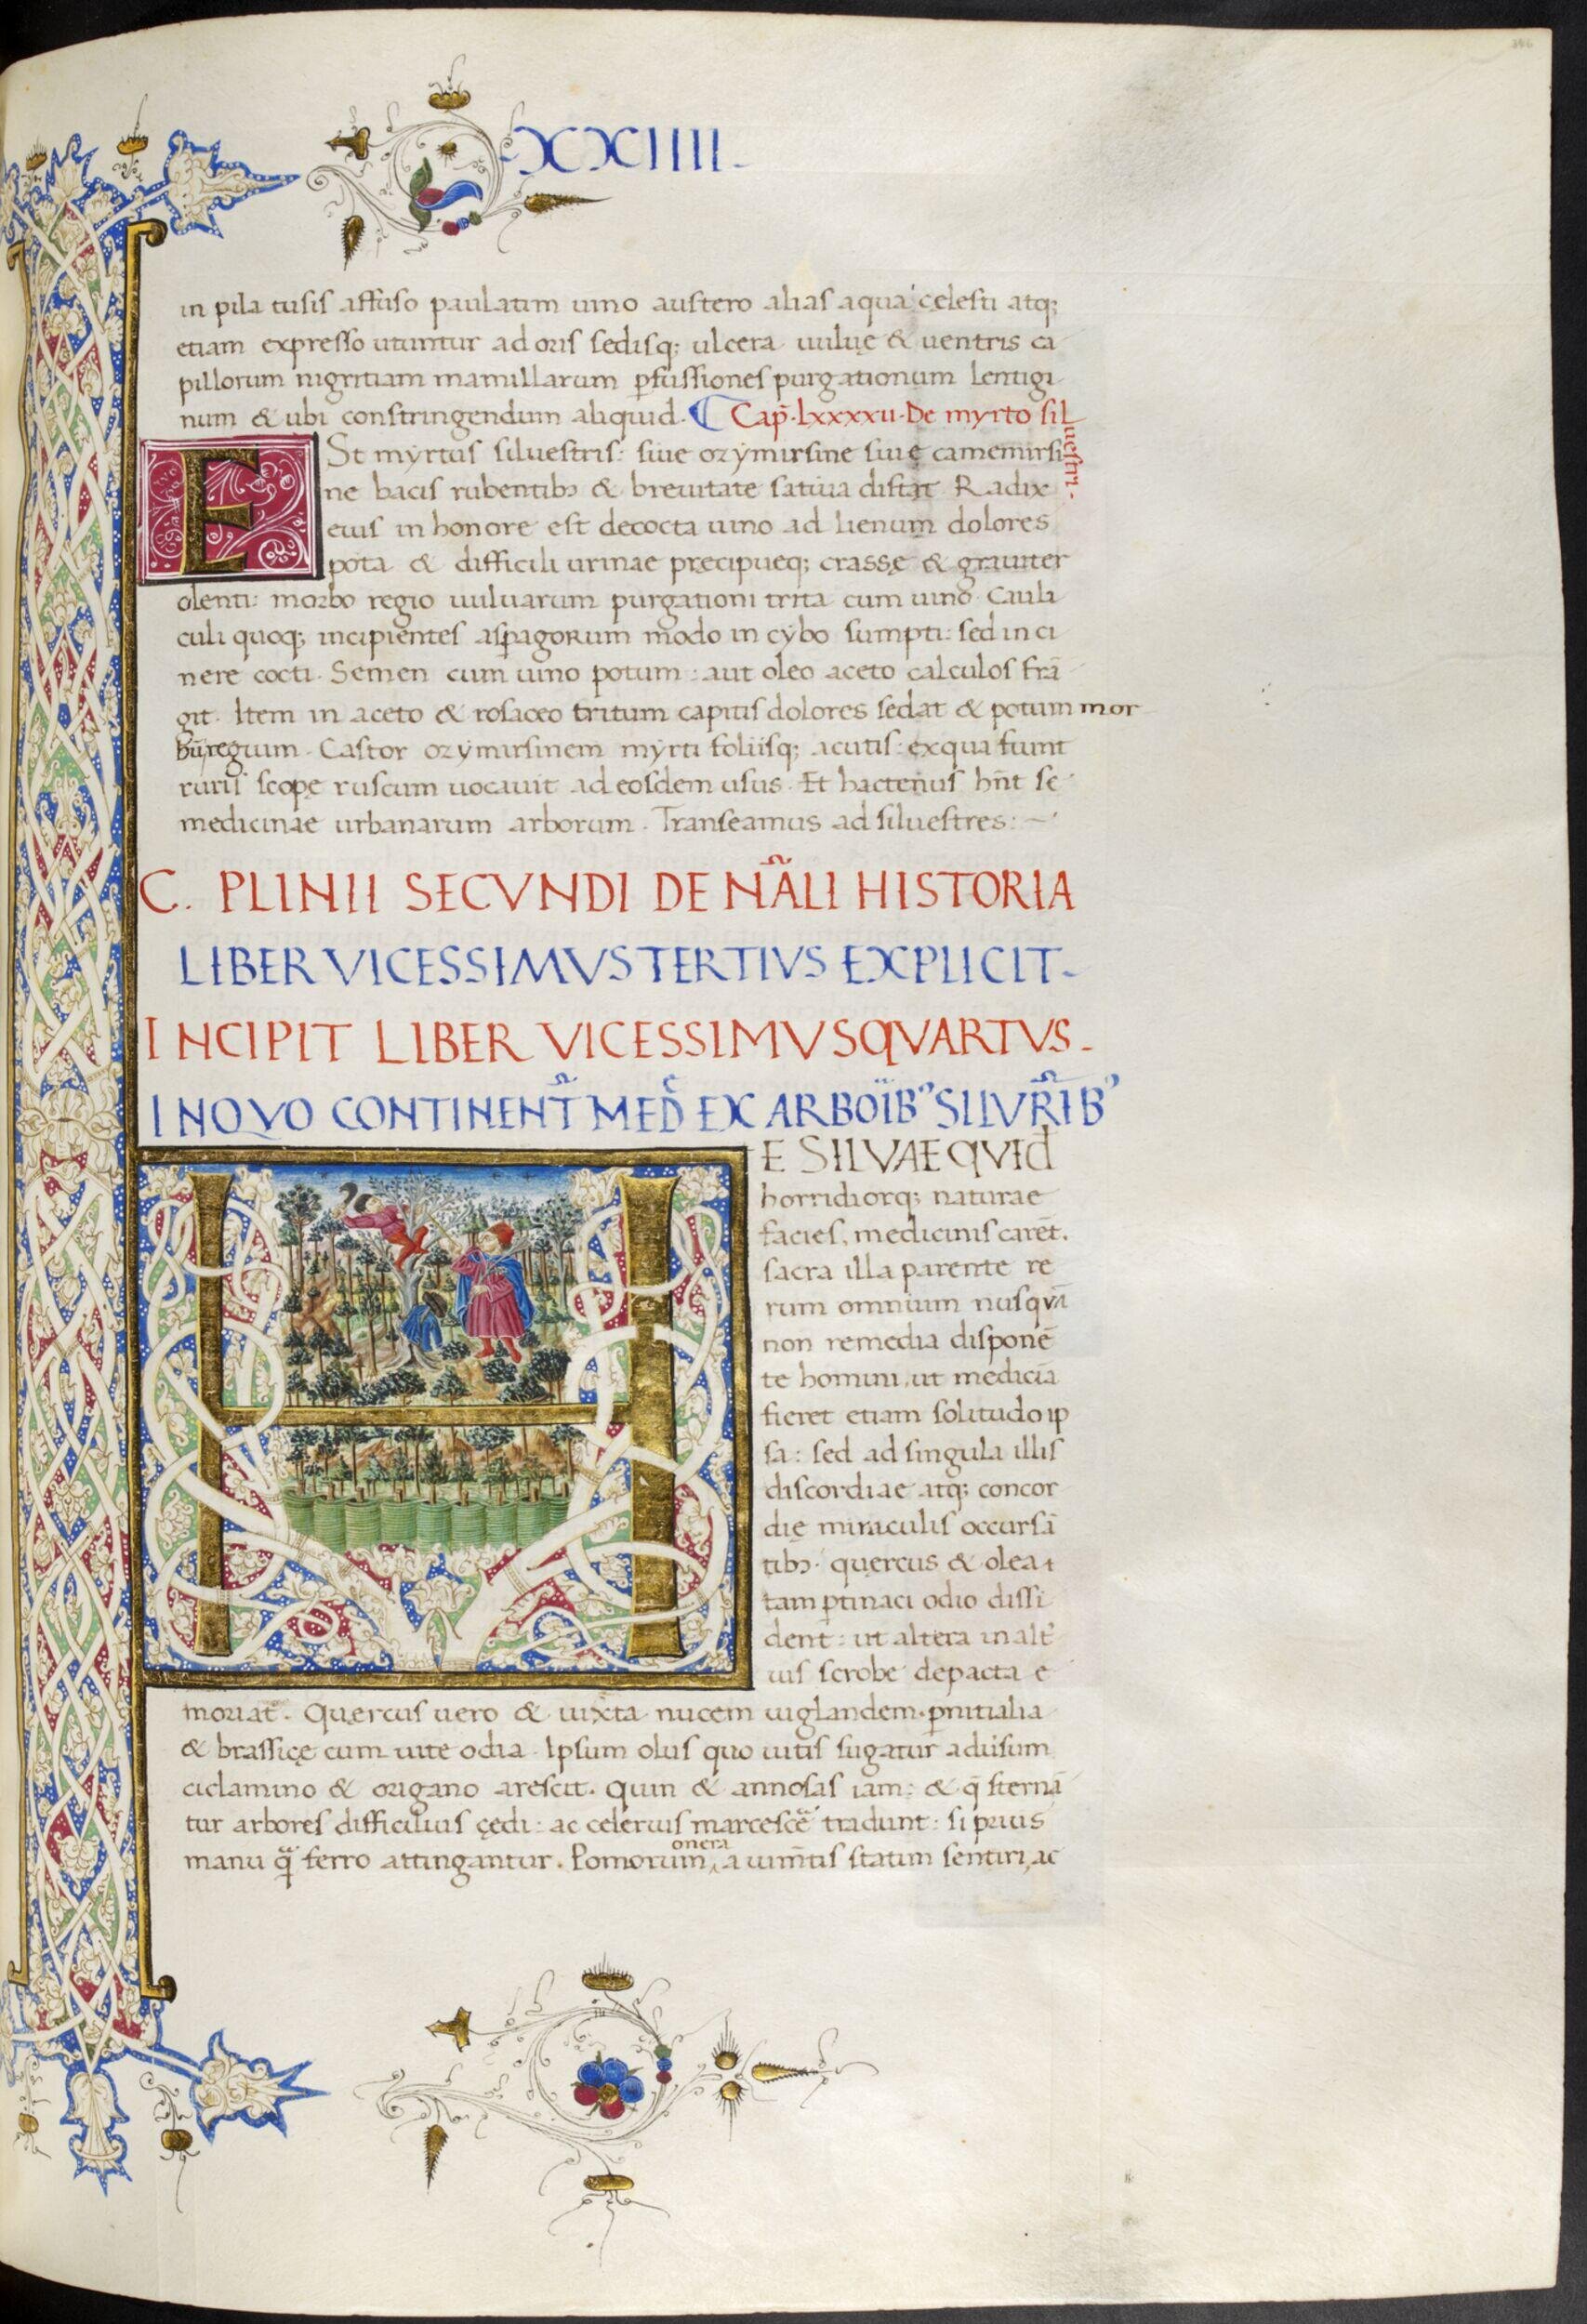 XXIIII.
in pila tusis affuso paulatim uino austero alias aqua celesti atq;
etiam expresso utuntur ad oris sedisq; ulcera uuluę & uentris ca
pillorum nigritiam mamillarum ꝑfussiones purgationum lentigi
num & ubi constringendum aliquid. Cap̄. lxxxxii. De myrto sil
uestri.
ESt myrtus siluestris: siue ozymirsine siuę camemirsi
ne bacis rubentibꝫ & breuitate satiua distat Radix
eius in honore est decocta uino ad lienum dolores
pota & difficili urinae pręcipueq; crassę & grauiter
olenti: morbo regio uuluarum purgationi trita cum uino. Cauli
culi quoq; incipientes asꝑagorum modo in cybo sumpti: sed in ci
nere cocti. Semen cum uino potum: aut oleo aceto calculos frā
git. Item in aceto & rosaceo tritum capitis dolores sedat & potum mor
bū regium. Castor ozymirsinem myrti foliisq; acutis: ex qua fiunt
ruris scopę ruscum uocauit ad eosdem usus. Et hactenus hn̄t se
medicinae urbanarum arborum. Transeamus ad siluestres:
C. PLINII SECVNDI DE NĀLI HISTORIA
LIBER VICESSIMVS TERTIVS EXPLICIT.
INCIPIT LIBER VICESSIMVS QVARTVS.
IN QVO CONTINENT̄ MED̄ EX ARBOIB' SILVRIB'
HE SILVAE QVId
horridiorq; naturae
facies, medicinis carēt.
sacra illa parente re
rum omnium nusqvā
non remedia disponē
te homini, ut mediciā
fieret etiam solitudo ip
sa: sed ad singula illis
discordiae atq; concor
dię miraculis occursā
tibꝫ. quercus & olea
tam ꝑtinaci odio dissi
dent: ut altera in alt̄
ius scrobe depacta e
moriat̄. Quercus uero & iuxta nucem iuglandem. ꝑnitialia
& brassicę cum uite odia. Ipsum olus quo uitis fugatur aduisum
ciclamino & origano arescit. Quin & annosas iam: & q̄ sternā
tur arbores difficilius cędi: ac celerius marcescē tradunt: si prius
manu q̄ ferro attingantur. Pomorum onera a iumn̄tis statim sentiri, ac